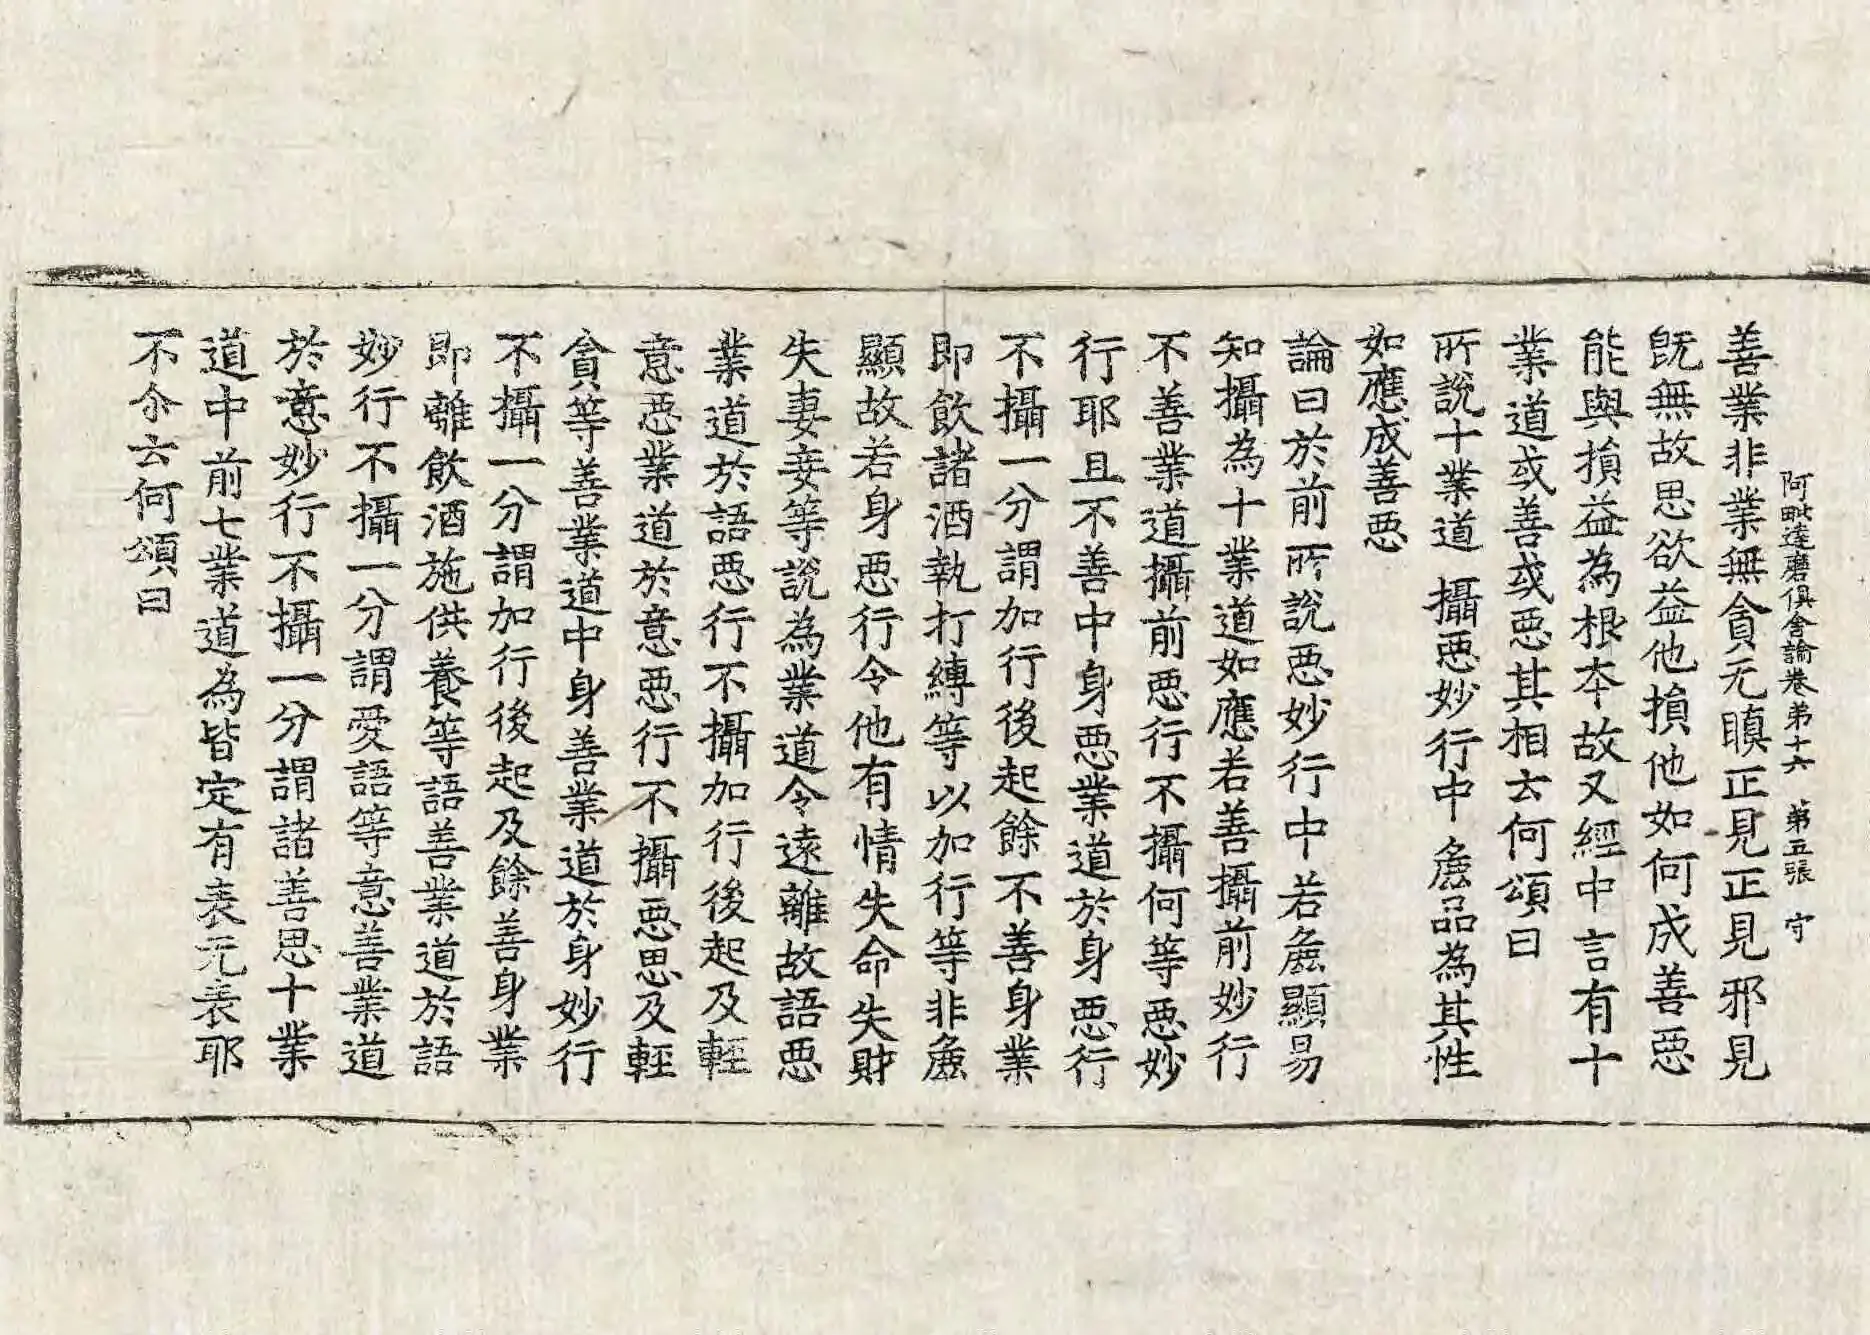 阿毗達磨俱舍論卷第十六 第五張 守
善業非業無貪无瞋正見正見邪見
旣無故思欲益他損他如何成善惡
能與損益為根本故又經中言有十
業道或善或惡其相云何頌曰
所說十業道 攝惡妙行中 麁品為其性
如應成善惡
論曰於前所說惡妙行中若麁顯易
知攝為十業道如應若善攝前妙行
不善業道攝前惡行不攝何等惡妙
行耶且不善中身惡業道於身惡行
不攝一分謂加行後起餘不善身業
即飲諸酒執打縛等以加行等非麁
顯故若身惡行令他有情失命失財
失妻妾等說為業道令遠離故語惡
業道於語惡行不攝加行後起及輕
意惡業道於意惡行不攝惡思及輕
貪等善業道中身善業道於身妙行
不攝一分謂加行後起及餘善身業
即離飲酒施供養等語善業道於語
妙行不攝一分謂愛語等意善業道
於意妙行不攝一分謂諸善思十業
道中前七業道為皆定有表无表耶
不尒云何頌曰